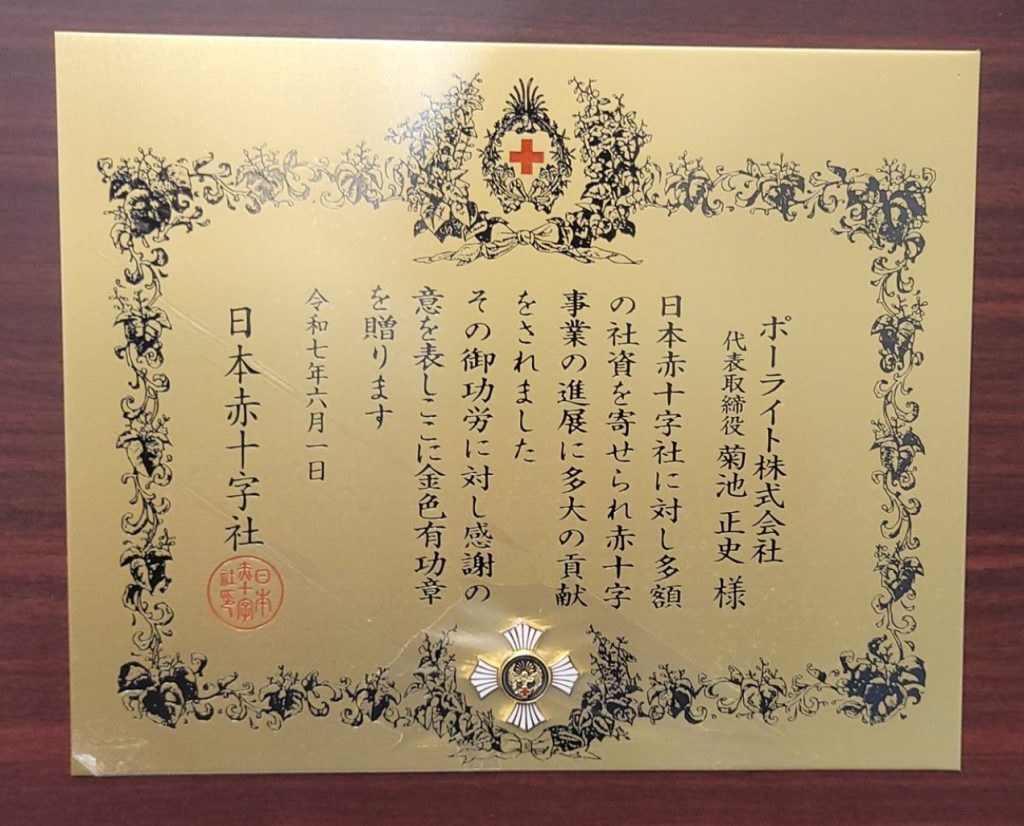 ポーライト株式会社
代表取締役 菊池 正史 様
日本赤十字社に対し多額
の社資を寄せられ赤十字
事業の進展に多大の貢献
をされました
その御功労に対し感謝の
意を表しここに金色有功章
を贈ります
令和七年六月一日
日本赤十字社
日本
赤十字
社印